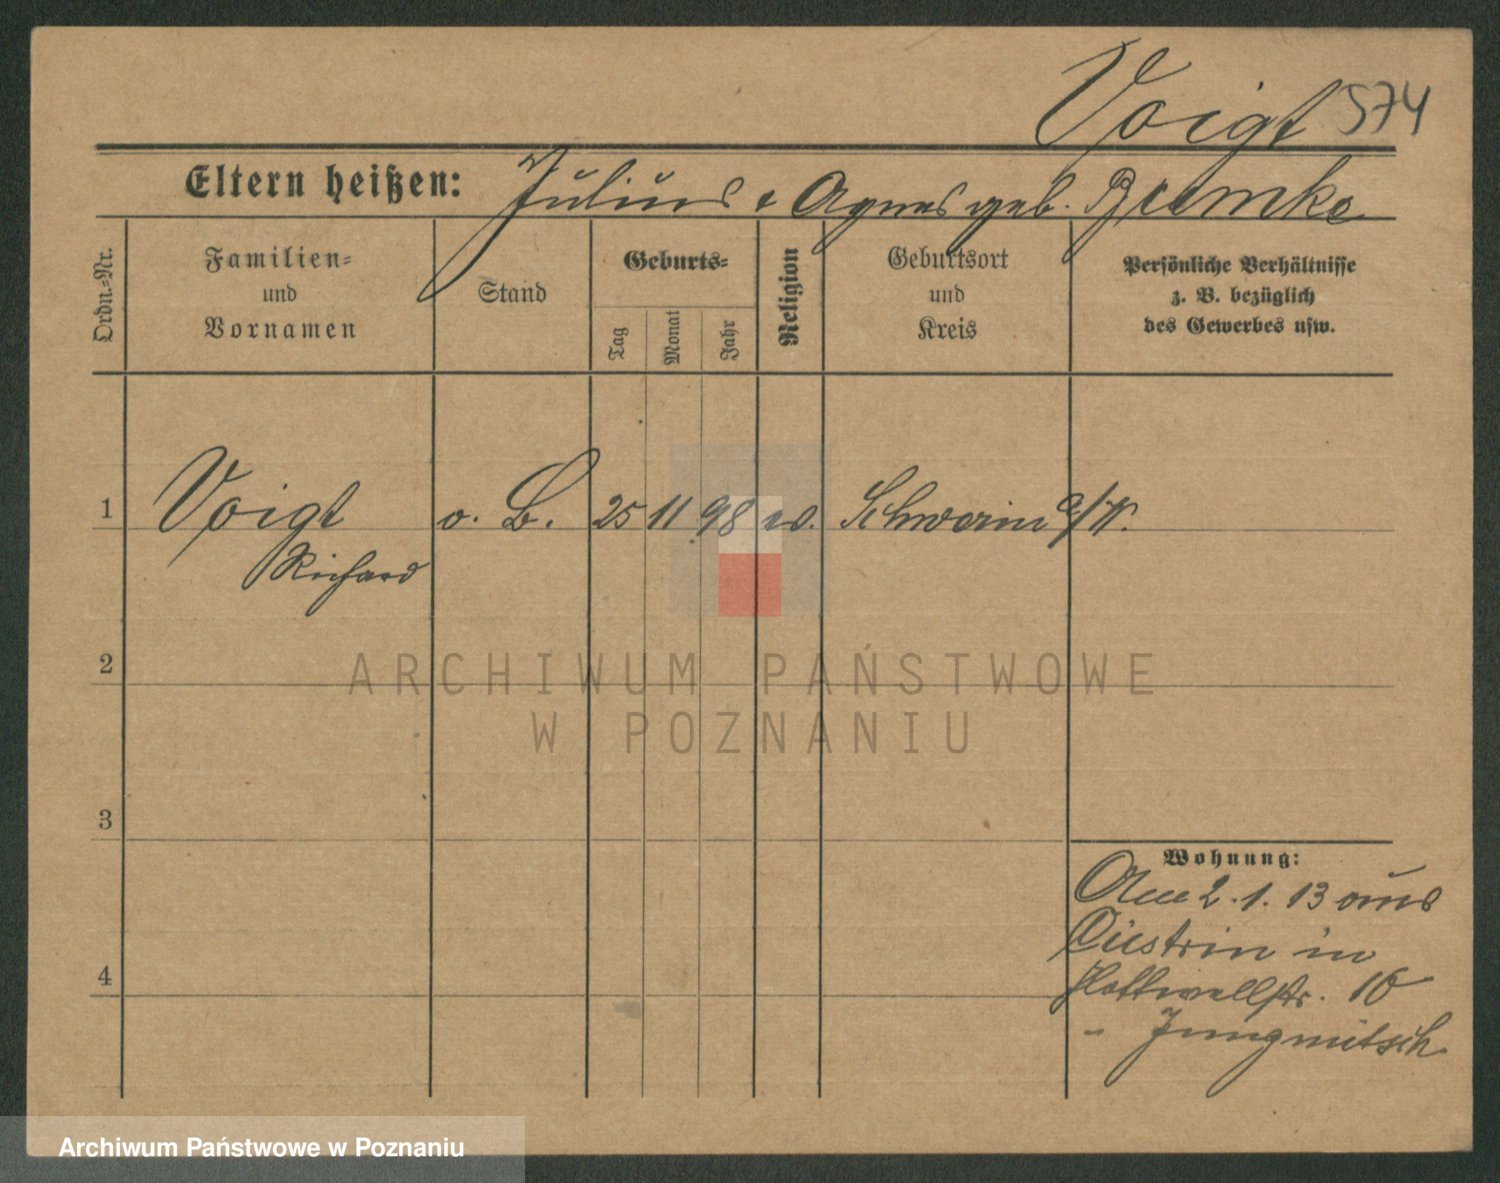 Voigt 574
Eltern heißen: Julius & Agnes geb. Bremke
Ordn.-Nr.
Familien-
und
Vornamen
Stand
Geburts-
Tag
Monat
Jahr
Religion
Geburtsort
und
Kreis
Persönliche Verhältnisse
z. B. bezüglich
des Gewerbes usw.
1 Voigt o. B. 25 11 98 ev. Schwerin a/W.
Richard
2
ARCHIWUM PAŃSTWOWE
W POZNANIU
3
Wohnung:
Am 2.1.13 aus
Cüstrin in
Hottwellstr. 16
- Jungnitsch
4
Archiwum Państwowe w Poznaniu